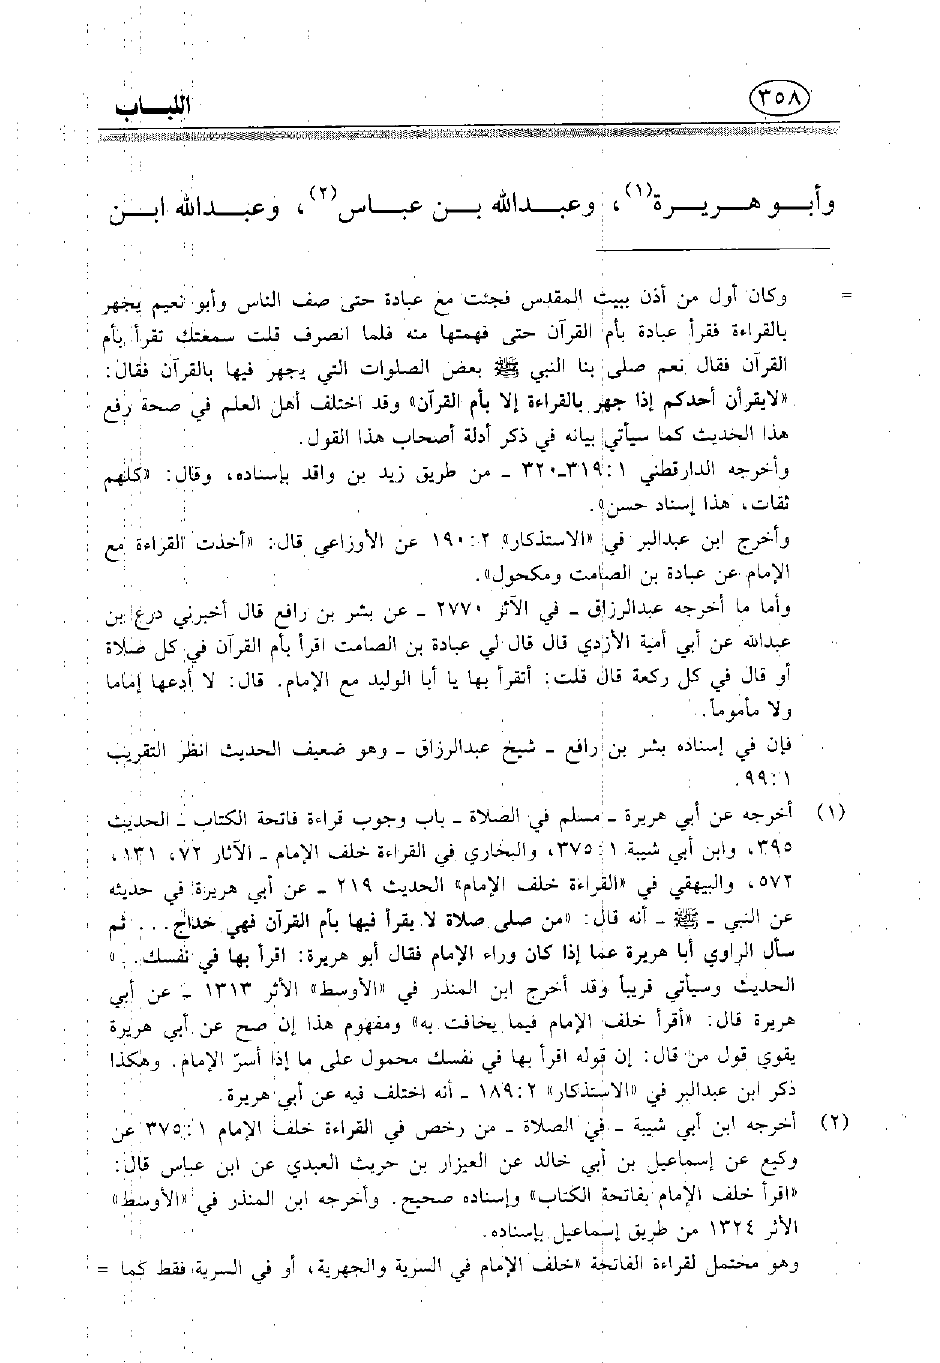 ٣٥٨
اللبـــاب
وأبـــو هـــريـــرة(١)، وعبـــدالله بـــن عبـــاس(٢)، وعبـــدالله ابـــن
= وكان أول من أذن ببيت المقدس فجئت مع عبادة حتى صف الناس وأبو نعيم يجهر
بالقراءة فقرأ عبادة بأم القرآن حتى فهمتها منه فلما انصرف قلت سمعتك تقرأ بأم
القرآن فقال نعم صلى بنا النبي ﷺ بعض الصلوات التي يجهر فيها بالقرآن فقال:
«لايقرأن أحدكم إذا جهر بالقراءة إلا بأم القرآن» وقد اختلف أهل العلم في صحة رفع
هذا الحديث كما سيأتي بيانه في ذكر أدلة أصحاب هذا القول.
وأخرجه الدارقطني ١:٣١٩ـ٣٢٠ ـ من طريق زيد بن واقد بإسناده، وقال: «كلهم
ثقات، هذا إسناد حسن».
وأخرج ابن عبدالبر في «الاستذكار» ٢:١٩٠ عن الأوزاعي قال: «أخذت القراءة مع
الإمام عن عبادة بن الصامت ومكحول».
وأما ما أخرجه عبدالرزاق ـ في الأثر ٢٧٧٠ ـ عن بشر بن رافع قال أخبرني درع بن
عبدالله عن أبي أمية الأزدي قال قال لي عبادة بن الصامت اقرأ بأم القرآن في كل صلاة
أو قال في كل ركعة قال قلت: أتقرأ بها يا أبا الوليد مع الإمام. قال: لا أدعها إماما
ولا مأموماً.
فإن في إسناده بشر بن رافع ـ شيخ عبدالرزاق ـ وهو ضعيف الحديث انظر التقريب
١:٩٩.
(١) أخرجه عن أبي هريرة ـ مسلم في الصلاة ـ باب وجوب قراءة فاتحة الكتاب ـ الحديث
٣٩٥، وابن أبي شيبة ١:٣٧٥، والبخاري في القراءة خلف الإمام ـ الآثار ٧٢، ١٣١،
٥٧٢، والبيهقي في «القراءة خلف الإمام» الحديث ٢١٩ ـ عن أبي هريرة في حديثه
عن النبي ـ ﷺ ـ أنه قال: «من صلى صلاة لا يقرأ فيها بأم القرآن فهي خداج... ثم
سأل الراوي أبا هريرة عما إذا كان وراء الإمام فقال أبو هريرة: اقرأ بها في نفسك..»
الحديث وسيأتي قريباً وقد أخرج ابن المنذر في «الأوسط» الأثر ١٣١٣ ـ عن أبي
هريرة قال: «أقرأ خلف الإمام فيما يخافت به» ومفهوم هذا إن صح عن أبي هريرة
يقوي قول من قال: إن قوله اقرأ بها في نفسك محمول على ما إذا أسرّ الإمام. وهكذا
ذكر ابن عبدالبر في «الاستذكار» ٢:١٨٩ ـ أنه اختلف فيه عن أبي هريرة.
(٢) أخرجه ابن أبي شيبة ـ في الصلاة ـ من رخص في القراءة خلف الإمام ١:٣٧٥ عن
وكيع عن إسماعيل بن أبي خالد عن العيزار بن حريث العبدي عن ابن عباس قال:
«اقرأ خلف الإمام بفاتحة الكتاب» وإسناده صحيح. وأخرجه ابن المنذر في «الأوسط»
الأثر ١٣٢٤ من طريق إسماعيل بإسناده.
وهو محتمل لقراءة الفاتحة «خلف الإمام في السرية والجهرية، أو في السرية فقط كما =